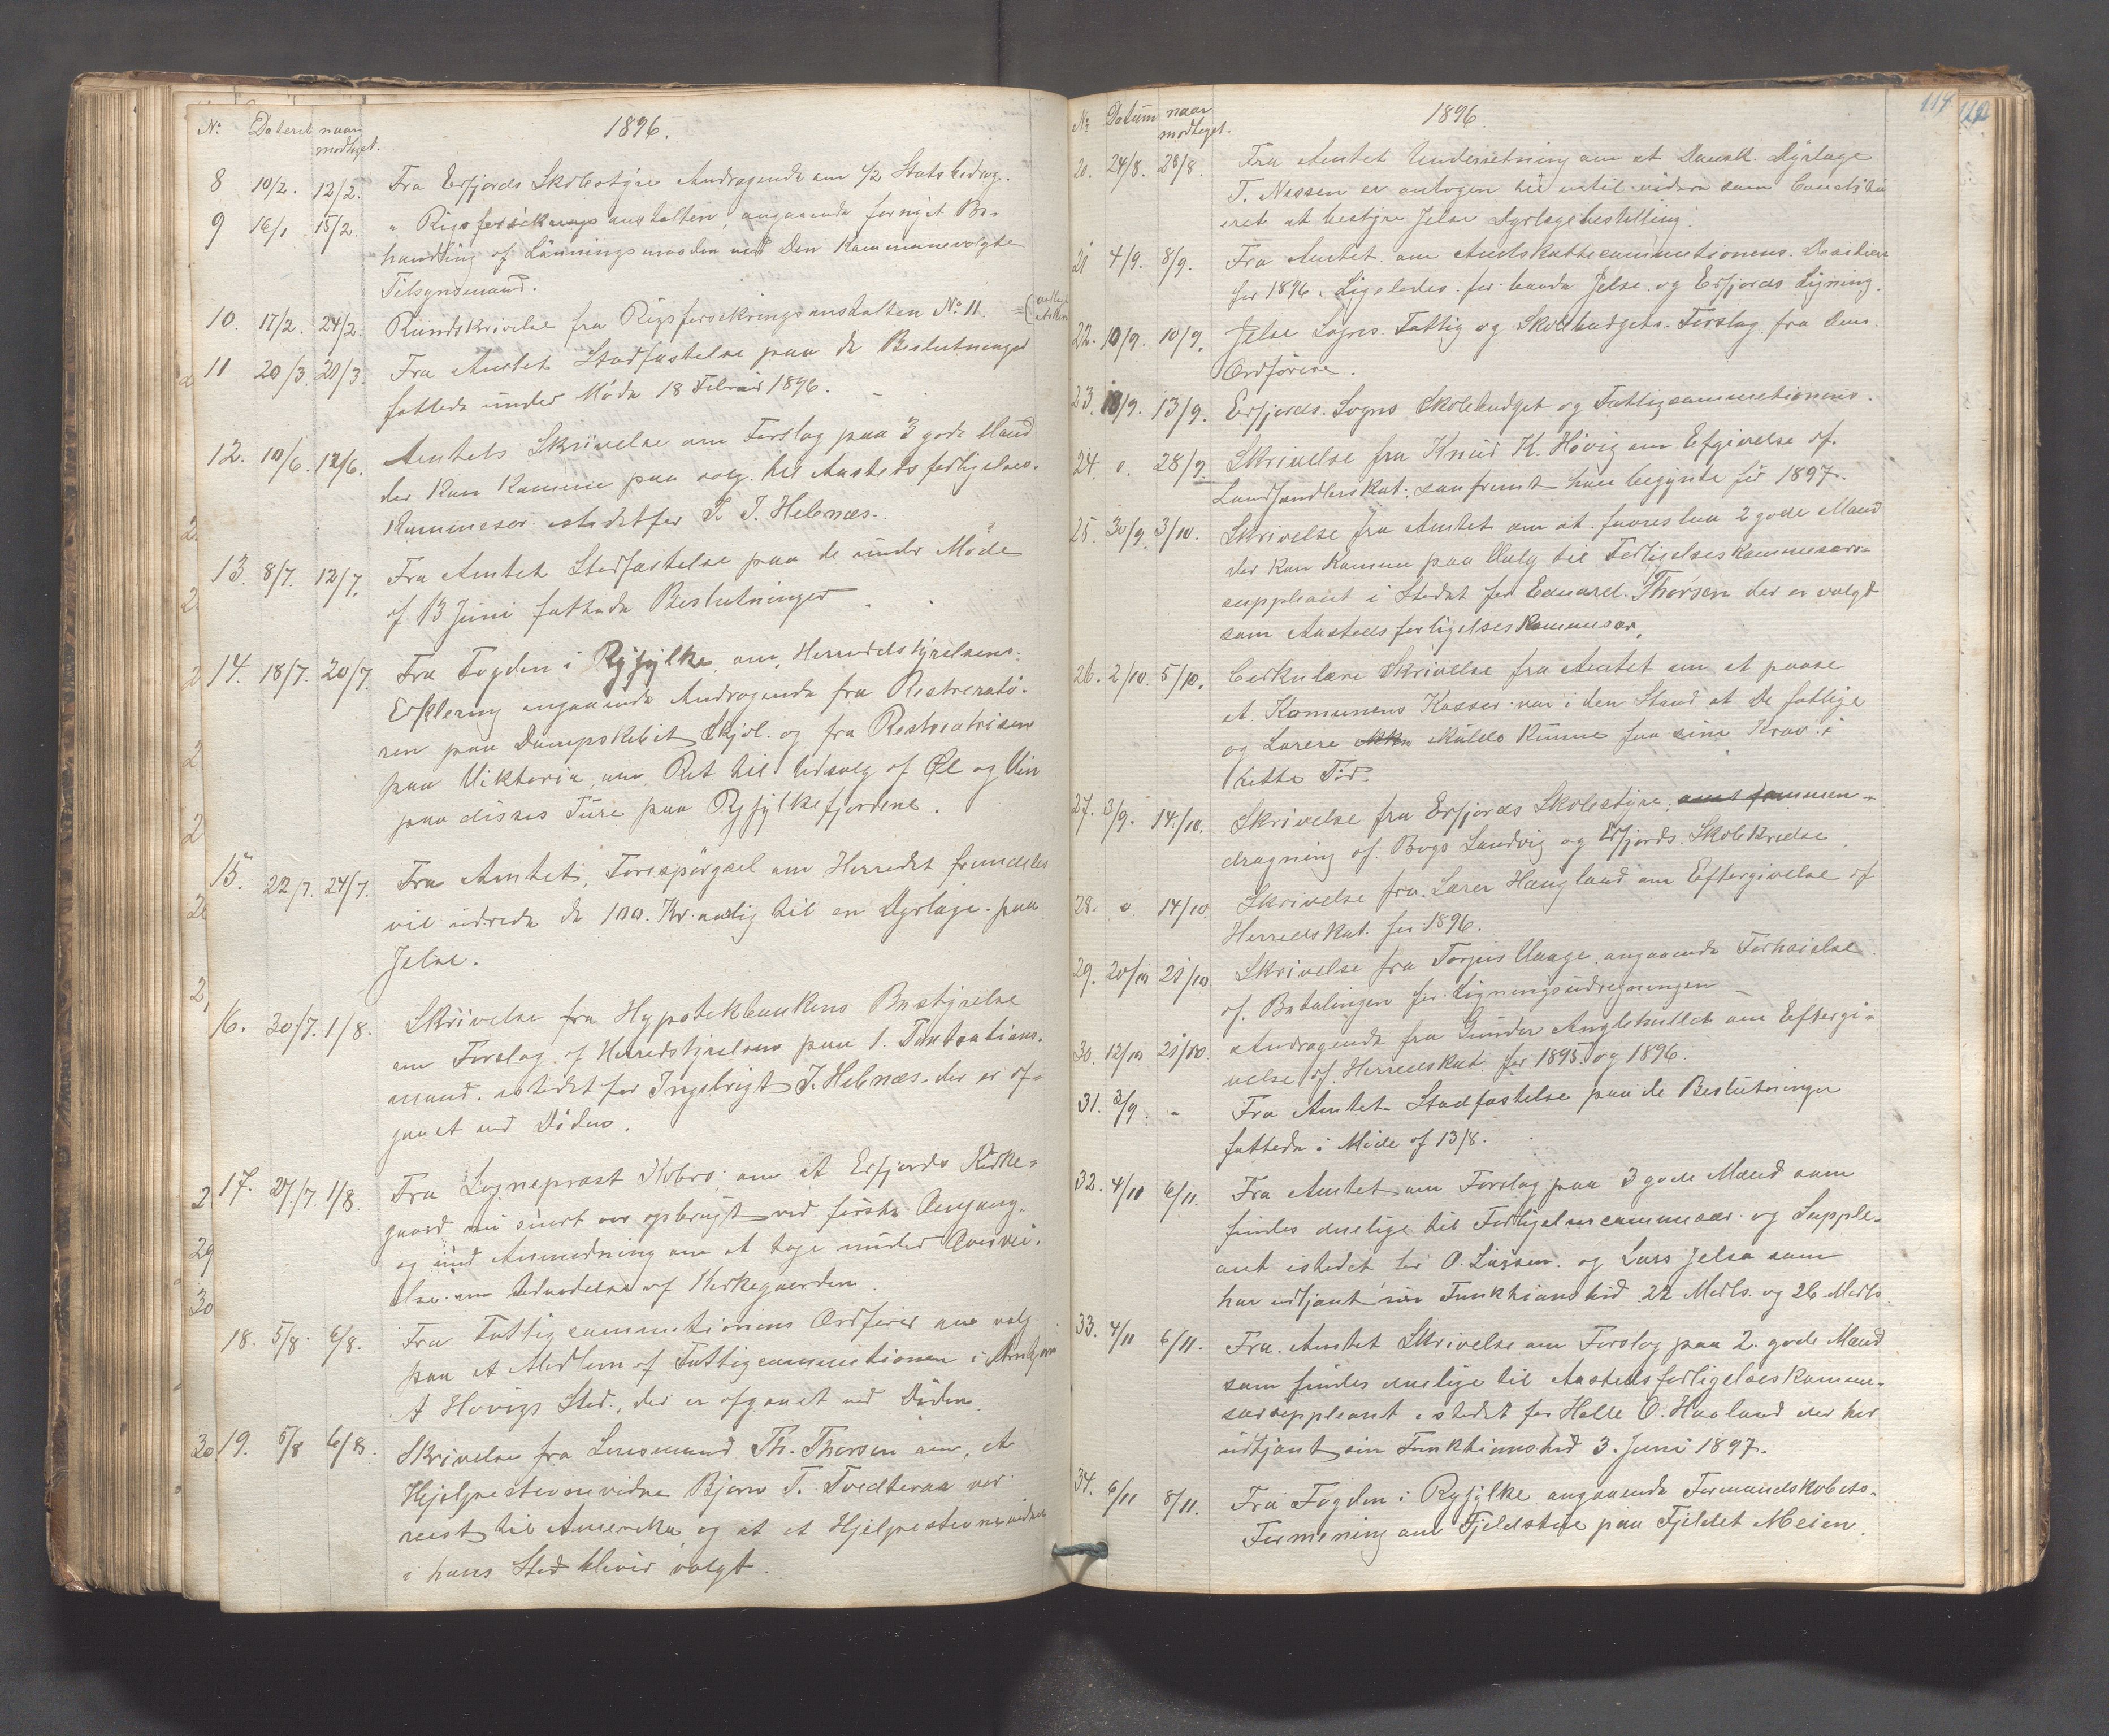 No Dateret naar modtaget. 1896.
8 10/2. 12/2. Fra Erfjords Skolestyre Andragende om 1/2 Statsbidrag.
9 16/1 15/2. " Rigsforsikringsanstalten, angaaende fornyet Be-
handling af Lønningsmaaden ved Den Kommunevalgte
Tilsynsmand.
10. 17/2. 24/2. Rundskrivelse fra Rigsforsikringsanstalten No 11.
11 20/3. 20/3. Fra Amtet Stadfæstelse paa de Beslutninger
fattede under Møde 18 Februar 1896.
12. 10/6. 12/6. Amtets Skrivelse om Forslag paa 3 gode Mænd
der kan komme paa valg til Aastedsforligelses-
kommesær istedetfor T. Helenæs.
13. 8/7. 12/7. Fra Amtet Stadfæstelse paa de under Møde
af 13 Juni fattede Beslutninger
14. 18/7. 20/7. Fra Fogden i Ryfylke om Herredsstyrelsens
Erklering angaaende Andragende fra Restreratø-
ren paa Dampskibet Skjol. og fra Restreatrisen
paa Viktoria om Ret til Udsalg af Øl og Vin
paa disses Ture paa Ryfylkefjordene.
15. 22/7. 24/7. Fra Amtet, Forespørgsel om Herredet fremdeles
vil udrede de 100. Kr. aarlig til en Dyrlæge paa
Jelse.
16. 30/7. 1/8. Skrivelse fra Hypotekbankens Bestyrelse
om Forslag af Herredstyrelsen paa 1. Taxtations-
mand istedet for Ingebrigt J. Helenæs der er af-
gaaet ved Døden.
17. 27/7. 1/8. Fra Sogneprest Kobro om at Erfjords Kirke-
gaard nu snart var opbrugt ved første Omgang
og med Anmodning om at tage under Overvei-
else om Udvidelse af Kirkegaarden.
18. 5/8. 6/8. Fra Fattigcommetionens Ordfører om valg
paa et Medlem af Fattigcommetionen i
A Hovigs Sted, der er afgaaet ved Døden.
19. 5/8 6/8. Skrivelse fra Lensmand Th. Thorsen om, at
Hjelpestevnevidne Bjørn T. Tvedteraa var
reist til Amerika og at et Hjelpestevnevidne
i hans Sted bliver valgt.
No Datum naar modtaget. 1896. 114
20. 24/8. 28/8. Fra Amtet Underretning om at Dansk. Dyrlæge
T. Nessen er antagen til indtil videre som
eret at bestyre Jelse Dyrlægebestilling.
21 4/9. 8/9. Fra Amtet om Amtskattecommetionens Desition
for 1896. Ligeledes for baade Jelse og Erfjords Ligning.
22. 10/9. 10/9. Jelse Sogns Fattig og Skolebudgets Forslag fra dens
Ordførere.
23. 13/9. Erfjords Sogns Skolebudget og Fattigcommetionens.
24. o. 28/9 Skrivelse fra Knud K. Høvig om Efgivelse af
Landhandlerskat, saafremt han begynte før 1897.
25. 30/9. 3/10. Skrivelse fra Amtet om at foareslaa 2 gode Mænd
der kan komme paa Valg til Forligelseskommesærs-
suppleant i Stedet for Eduard. Thorsen der er valgt
som Aastedsforligelseskommesær.
26. 2/10. 5/10. Cerkulære Skrivelse fra Amtet om at paase
at Komunens Kasser var i den Stand at De fattige
og Lærere ikke skulde kunne faa sine Krav i
rette Tid.
27. 3/9. 14/10. Skrivelse fra Erfjords Skolestyre, amt sammen-
dragning af Bogs Landvig og Erfjords Skolekredse
28. o 14/10. Skrivelse fra Lærer Haugland om Eftergivelse af
Herredskat for 1896.
29. 20/10 21/10 Skrivelse fra Torjus Vaage angaaende Forhøielse
af Betalingen for Ligningsudregningen
30. 12/10 21/10. Andragende fra Gunder Anglehullet om Eftergi-
velse af Herredskat for 1895 og 1896.
31. 3/9. - Fra Amtet Stadfæstelse paa de Beslutninger
fattede i Møde af 13/8.
32. 4/11 6/11. Fra Amtet om Forslag paa 3 gode Mænd som
findes duelige til Forligelsescommesær og Supple-
ant istedet for O. Larsen og Lars Jelsa som
har udtjent sin Funktionstid 22 Marts og 26 Marts
33. 4/11 6/11. Fra Amtet Skrivelse om Forslag paa 2 gode Mænd
som findes duelige til Aastedsforligelseskomme-
særsuppleant istedet for Halle O. Haaland der har
udtjent sin Funktionstid 3. Juni 1897.
34. 6/11 8/11. Fra Fogden i Ryfylke angaaende Formandskabets
Formening om Fjeldstue paa Fjeldet Meien.